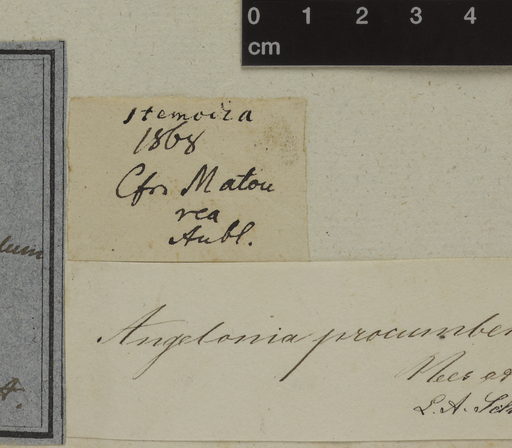 0 1 2 3 4
cm
Stemodia
1868
Cfr. Matou
rea
Aubl.
lum
A.
Angelonia procumben
Nees et
L. A. Sch